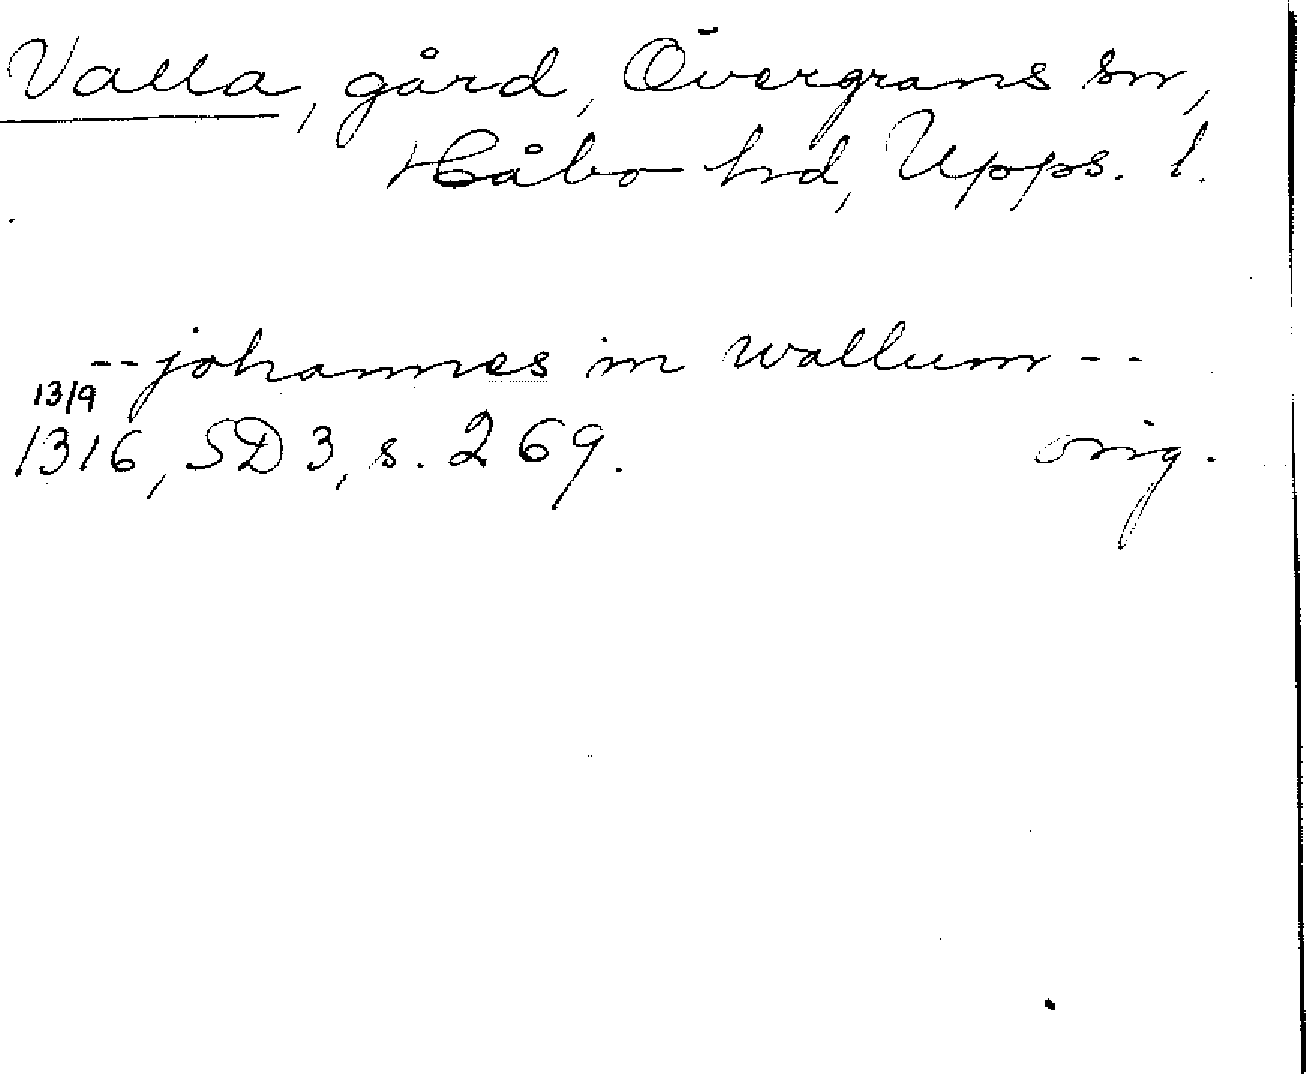 Valla, gård, Övergrans sn,
Håbo hd, Upps. l.
-- johannes in wallum --
13/9
1316, SD 3, s. 269. orig.